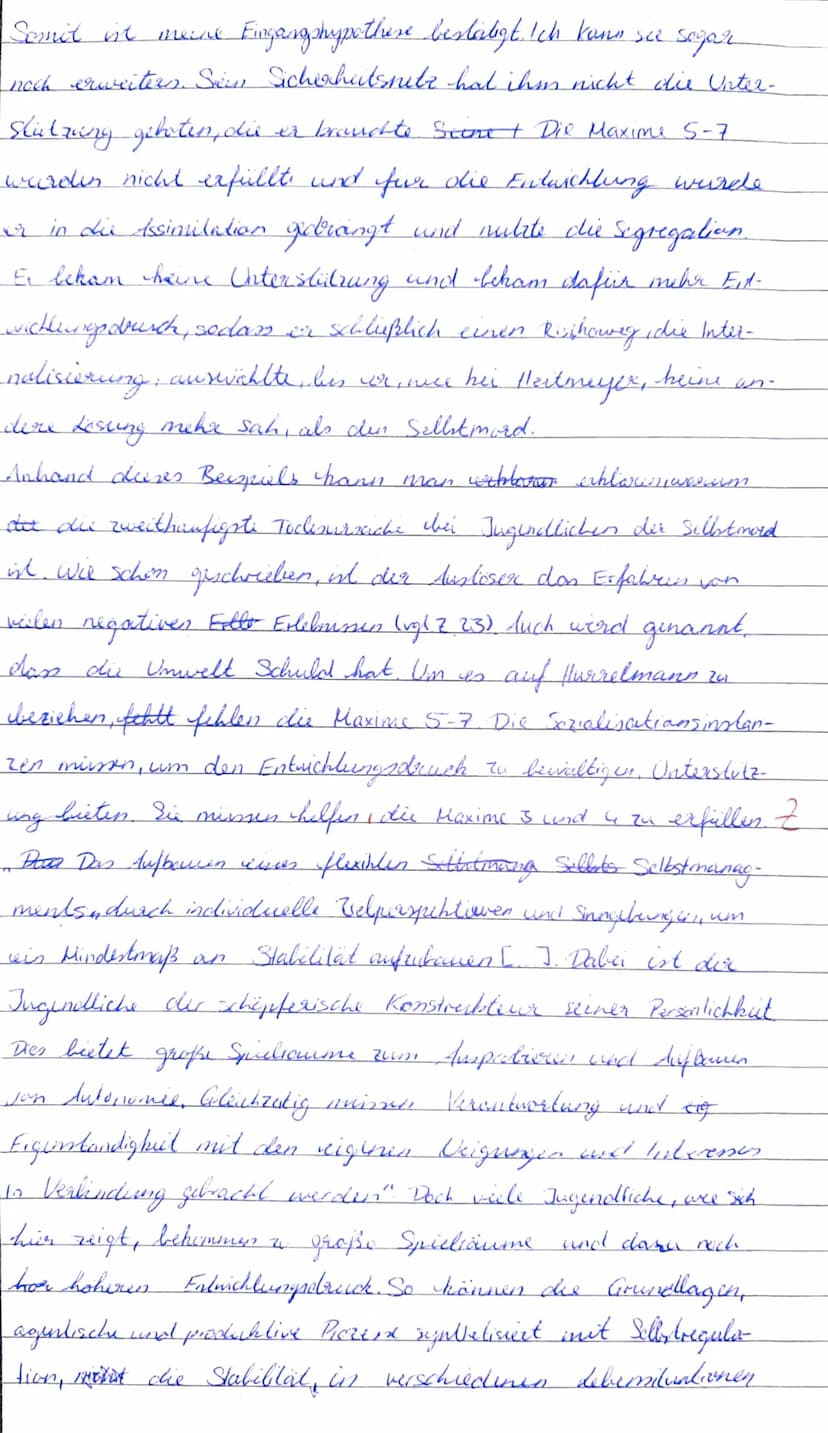 Somit ist meine Eingangshypothese bestätigt. Ich kann sie sogar
noch erweitern. Sein Sicherheitsnetz hat ihm nicht die Unter-
stützung geboten, die er brauchte Die Maxime 5-7
wurden nicht erfüllt und für die Entwicklung wurde
er in die Assimilation gedrängt und nutzte die Segregation.
Er bekam keine Unterstützung und bekam dafür mehr Ent-
wicklungsdruck, sodass er schließlich einen Risikoweg, die Inter-
nalisierung, auswählte, bis er, wie bei Heitmeyer, keine an-
dere Lösung mehr sah, als den Selbstmord.
Anhand dieses Beispiels kann man erklären, warum
die zweithäufigste Todesursache bei Jugendlichen der Selbstmord
ist. Wie schon geschrieben, ist der Auslöser das Erfahren von
vielen negativen Erlebnissen (vgl Z. 23). Auch wird genannt,
dass die Umwelt Schuld hat. Um es auf Hurrelmann zu
beziehen, fehlen die Maxime 5-7. Die Sozialisationsinstan-
zen müssen, um den Entwicklungsdruck zu bewältigen, Unterstütz-
ung bieten. Sie müssen helfen, die Maxime 3 und 4 zu erfüllen. Z
„Das Aufbauen eines flexiblen Selbstmanag-
ments, durch individuelle Zielperspektiven und Sinngebungen, um
ein Mindestmaß an Stabilität aufzubauen [...]. Dabei ist der
Jugendliche der schöpferische Konstrukteur seiner Persönlichkeit.
Dies bietet große Spielräume zum Ausprobieren und Aufbauen
von Autonomie. Gleichzeitig müssen Verantwortung und
Eigenständigkeit mit den eigenen Neigungen und Interessen
in Verbindung gebracht werden". Doch viele Jugendliche, wie sich
hier zeigt, bekommen zu große Spielräume und dazu noch
höheren Entwicklungsdruck. So können die Grundlagen,
agentische und produktive Prozesse synthetisiert mit Selbstregula-
tion, die Stabilität, in verschiedenen Lebenssituationen